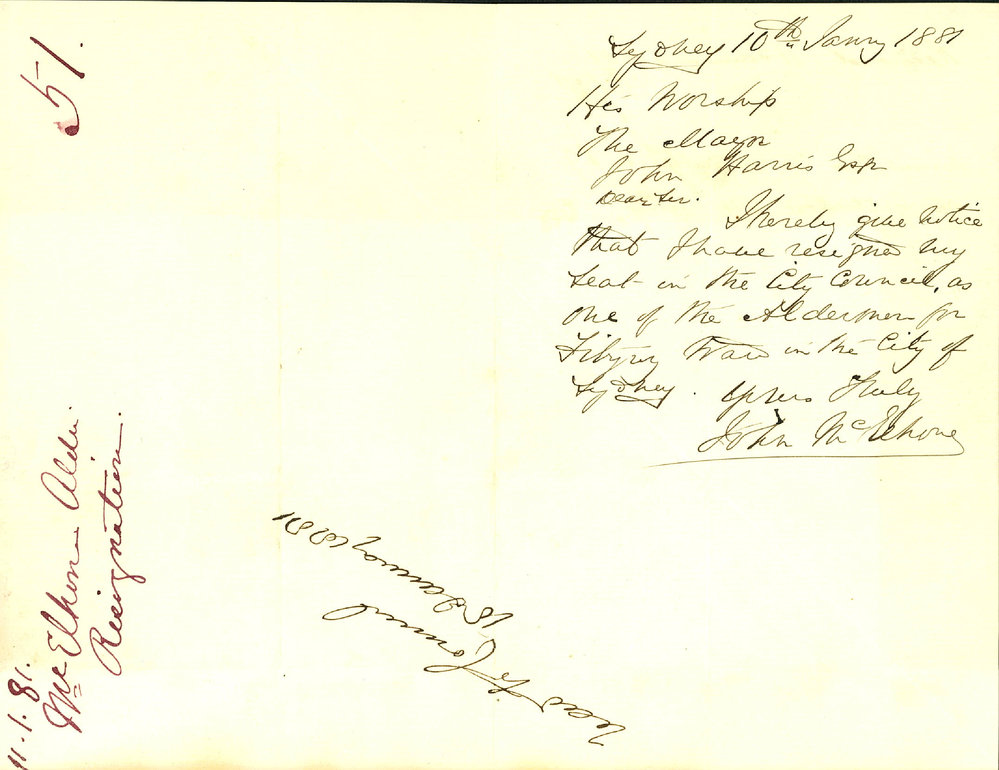 51.
Sydney 10th Janry 1881
His Worship
The Mayor
John Harris Esqr
Dear Sir.
I hereby give notice
that I have resigned my
seat in the City Council, as
one of the Aldermen for
Fitzroy Ward in the City of
Sydney. Yours Truly
John McElhone
11.1.81.
McElhone Aldn.
Resignation.
Read to Council
18 January 1881